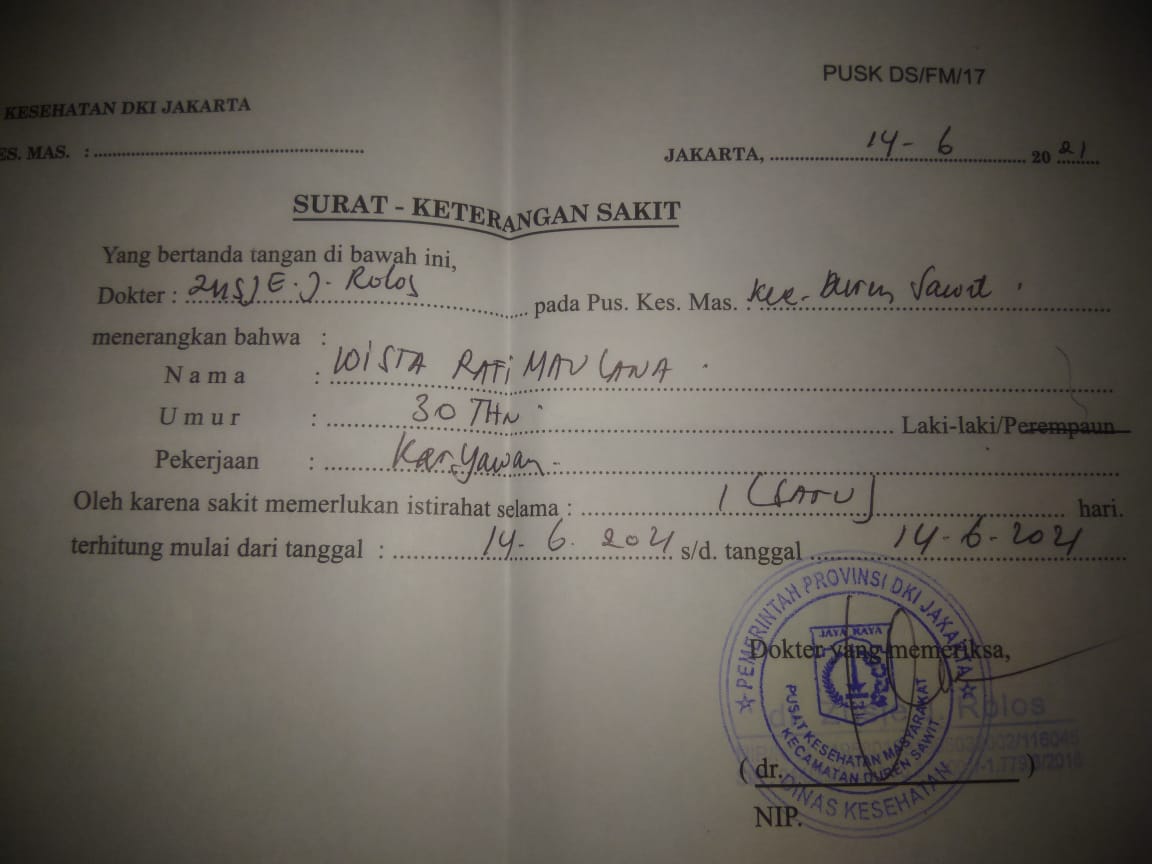 PUSK DS/FM/17
KESEHATAN DKI JAKARTA
ES. MAS. :
JAKARTA, 14 - 6 2021
SURAT - KETERANGAN SAKIT
Yang bertanda tangan di bawah ini,
Dokter : ZUSJE. J. Rolos pada Pus. Kes. Mas. : Kec. Duren Sawit
menerangkan bahwa :
Nama : WISTA RAFI MAULANA
Umur : 30 THN Laki-laki/Perempaun
Pekerjaan : Karyawan
Oleh karena sakit memerlukan istirahat selama : 1 (SATU) hari.
terhitung mulai dari tanggal : 14 - 6. 2021 s/d. tanggal 14 - 6 - 2021
PEMERINTAH PROVINSI DKI JAKARTA
JAYA RAYA
Dokter yang memeriksa,
PUSAT KESEHATAN MASYARAKAT
KECAMATAN DUREN SAWIT
DINAS KESEHATAN
Rolos
( dr. )
NIP.